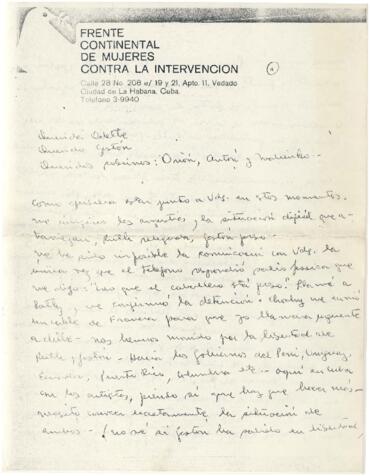 FRENTE
CONTINENTAL
DE MUJERES
CONTRA LA INTERVENCION
Calle 28 No. 208 e/ 19 y 21, Apto. 11, Vedado
Ciudad de La Habana, Cuba.
Teléfono 3-9940
Querida Odette
Querido Gastón
Queridos sobrinos: Orión, Antú y
Como quisiera estar junto a Vds. en estos momentos.
me imagino las angustias y la situación difícil que a-
traviesan, Ruth relegada, Gastón preso.
me ha sido imposible la comunicación con Vds. la
única vez que el teléfono respondió salió
me dijo: "creo que el caballero está preso". Llamé a
me confirmó la detención. me envió
un cable de Francia para que yo llamara urgente
a Chile - nos hemos movido por la libertad de
Ruth y Gastón - Hacia los Gobiernos del Perú, Uruguay,
Ecuador, Puerto Rico, Colombia etc - aquí en Cuba
con los artistas, pienso sí que hay que hacer más -
necesito conocer exactamente la situación de
ambos - (no sé si Gastón ha salido en libertad,